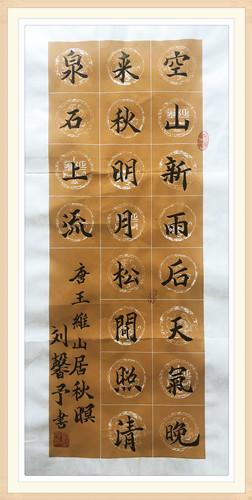 空山新雨后天氣晚
来秋明月松間照清
泉石上流
唐王維山居秋暝
刘馨予書